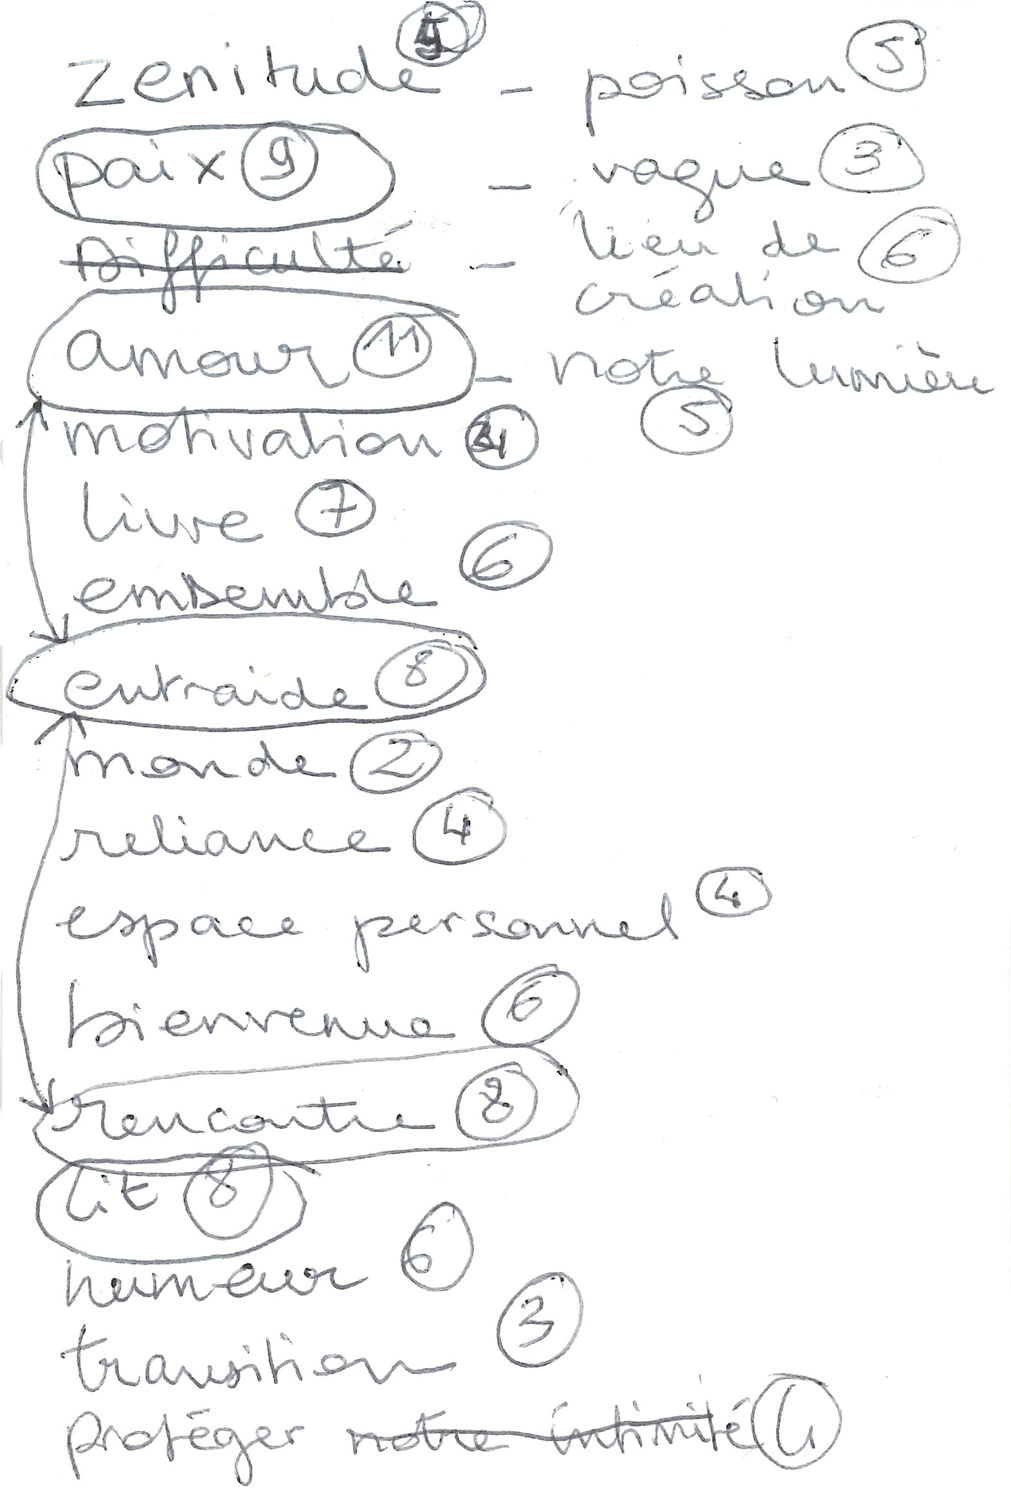 zenitude - poisson 5
paix 9 - vague 3
Difficulté - lieu de 6
création
amour 11 - notre lumière
motivation 5
livre 7
ensemble 6
entraide 8
monde 2
reliance 4
espace personnel 4
bienvenue 6
rencontre 8
lit 8
humeur 6
transition 3
protéger notre intimité 4